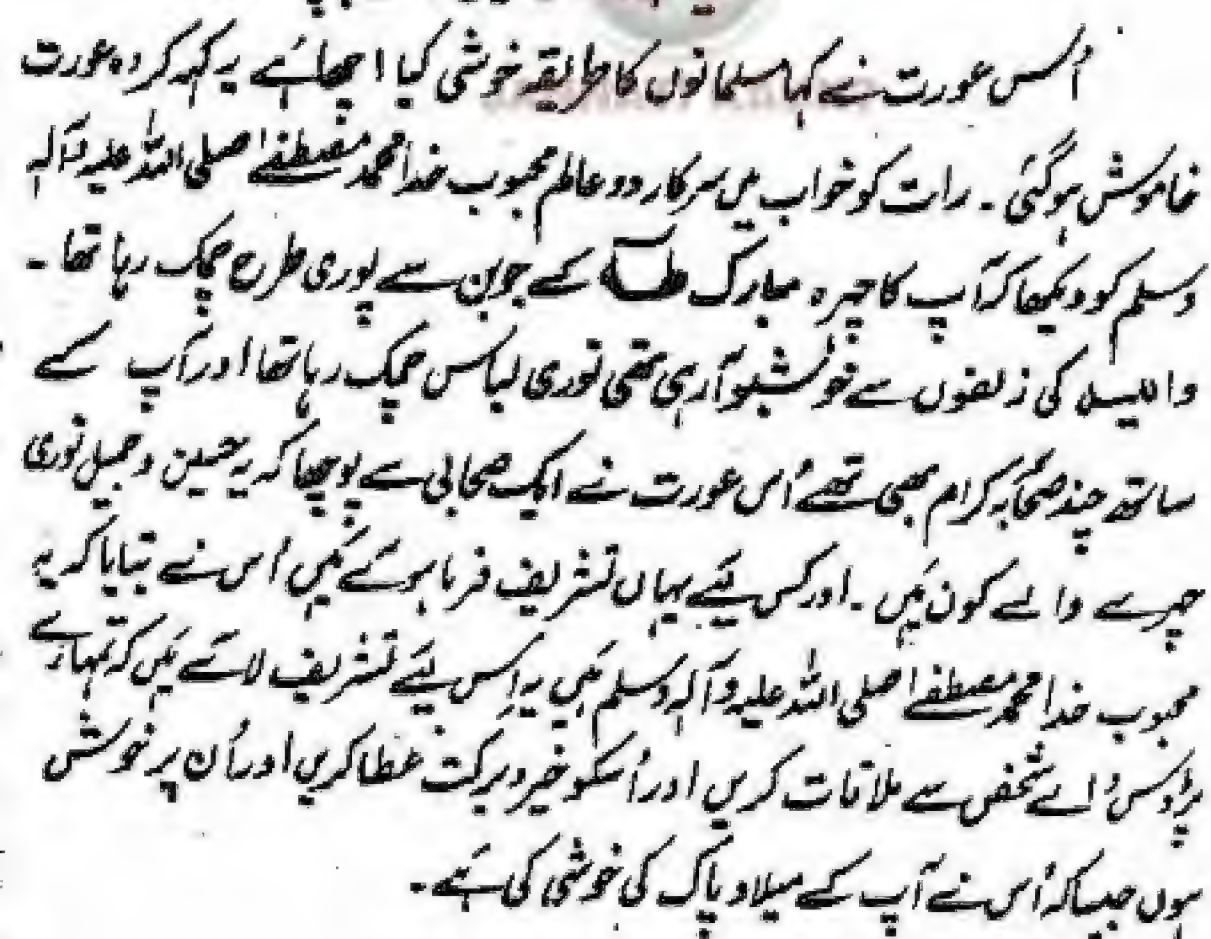 اُس عورت نے کہا مسلمانوں کا طریقہ خوشی کیا اچھا ہے یہ کہہ کر وہ عورت
خاموش ہوگئی ۔ رات کو خواب میں سرکار دو عالم محبوب خدا محمد مصطفےٰ صلی اللہ علیہ وآلہ
وسلم کو دیکھا کہ آپ کا چہرہ مبارک طٰہٰ کے جوبن سے پوری طرح چمک رہا تھا ۔
واللیل کی زلفوں سے خوشبو آرہی تھی نوری لباس چمک رہا تھا اور آپ کے
ساتھ چند صحابہ کرام بھی تھے اُس عورت نے ایک صحابی سے پوچھا کہ یہ حسین وجمیل نوری
چہرے والے کون ہیں ۔ اور کس لیئے یہاں تشریف فرما ہوئے ہیں اُس نے بتایا کہ یہ
محبوب خدا محمد مصطفےٰ صلی اللہ علیہ وآلہ وسلم ہیں یہ اِس لیئے تشریف لائے ہیں کہ تمہارے
پڑوس والے شخص سے ملاقات کریں اور اُسکو خیر و برکت عطا کریں اور اُن پر خوش
ہوں جیسا کہ اُس نے آپ کے میلاد پاک کی خوشی کی ہے ۔